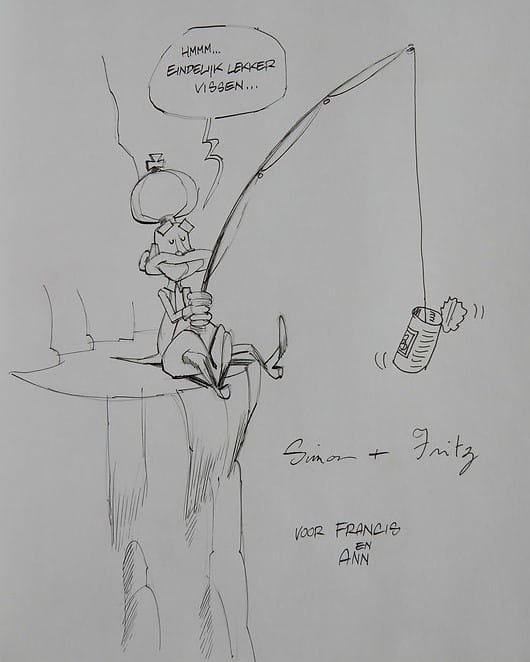 HMMM...
EINDELIJK LEKKER
VISSEN...
Simon + Fritz
VOOR FRANCIS
EN
ANN